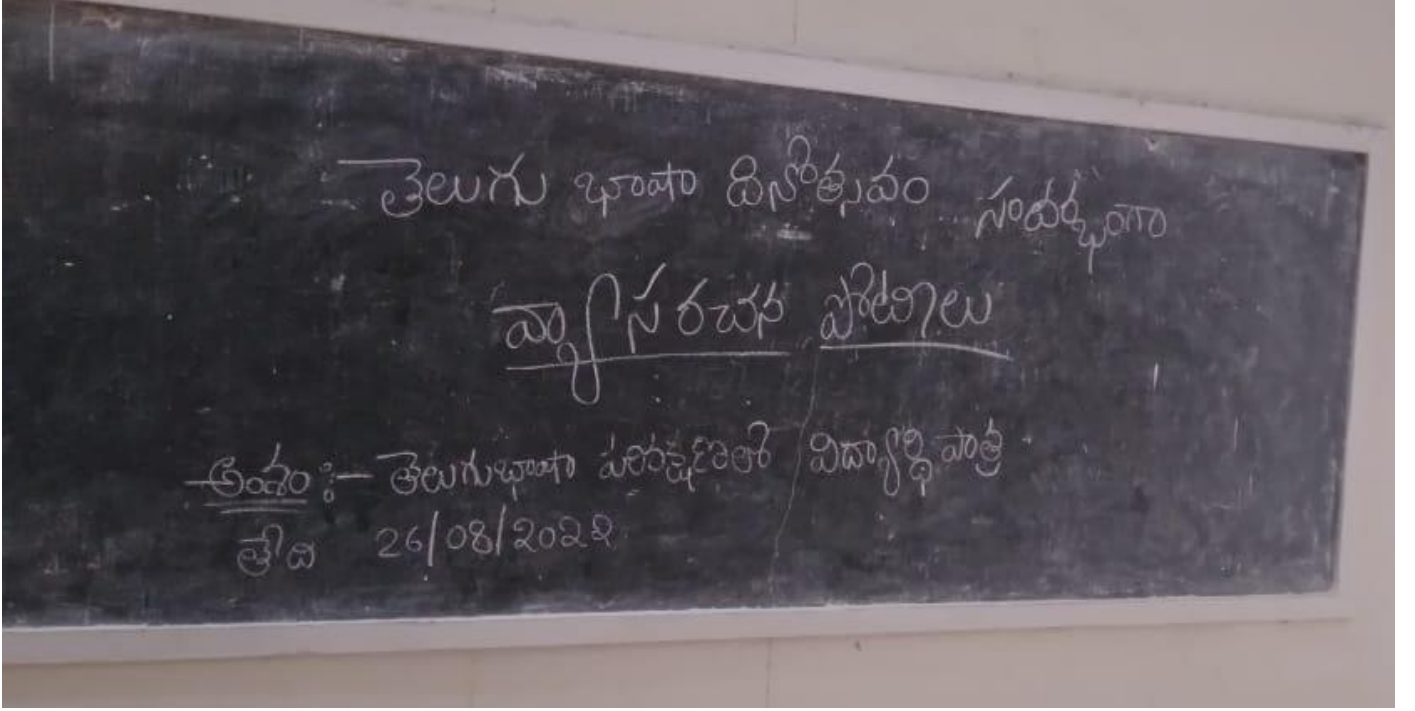 తెలుగు భాషా దినోత్సవం సందర్భంగా
వ్యాసరచన పోటీలు
అంశం :- తెలుగుభాషా పరిరక్షణలో విద్యార్థి పాత్ర
తేది 26/08/2022